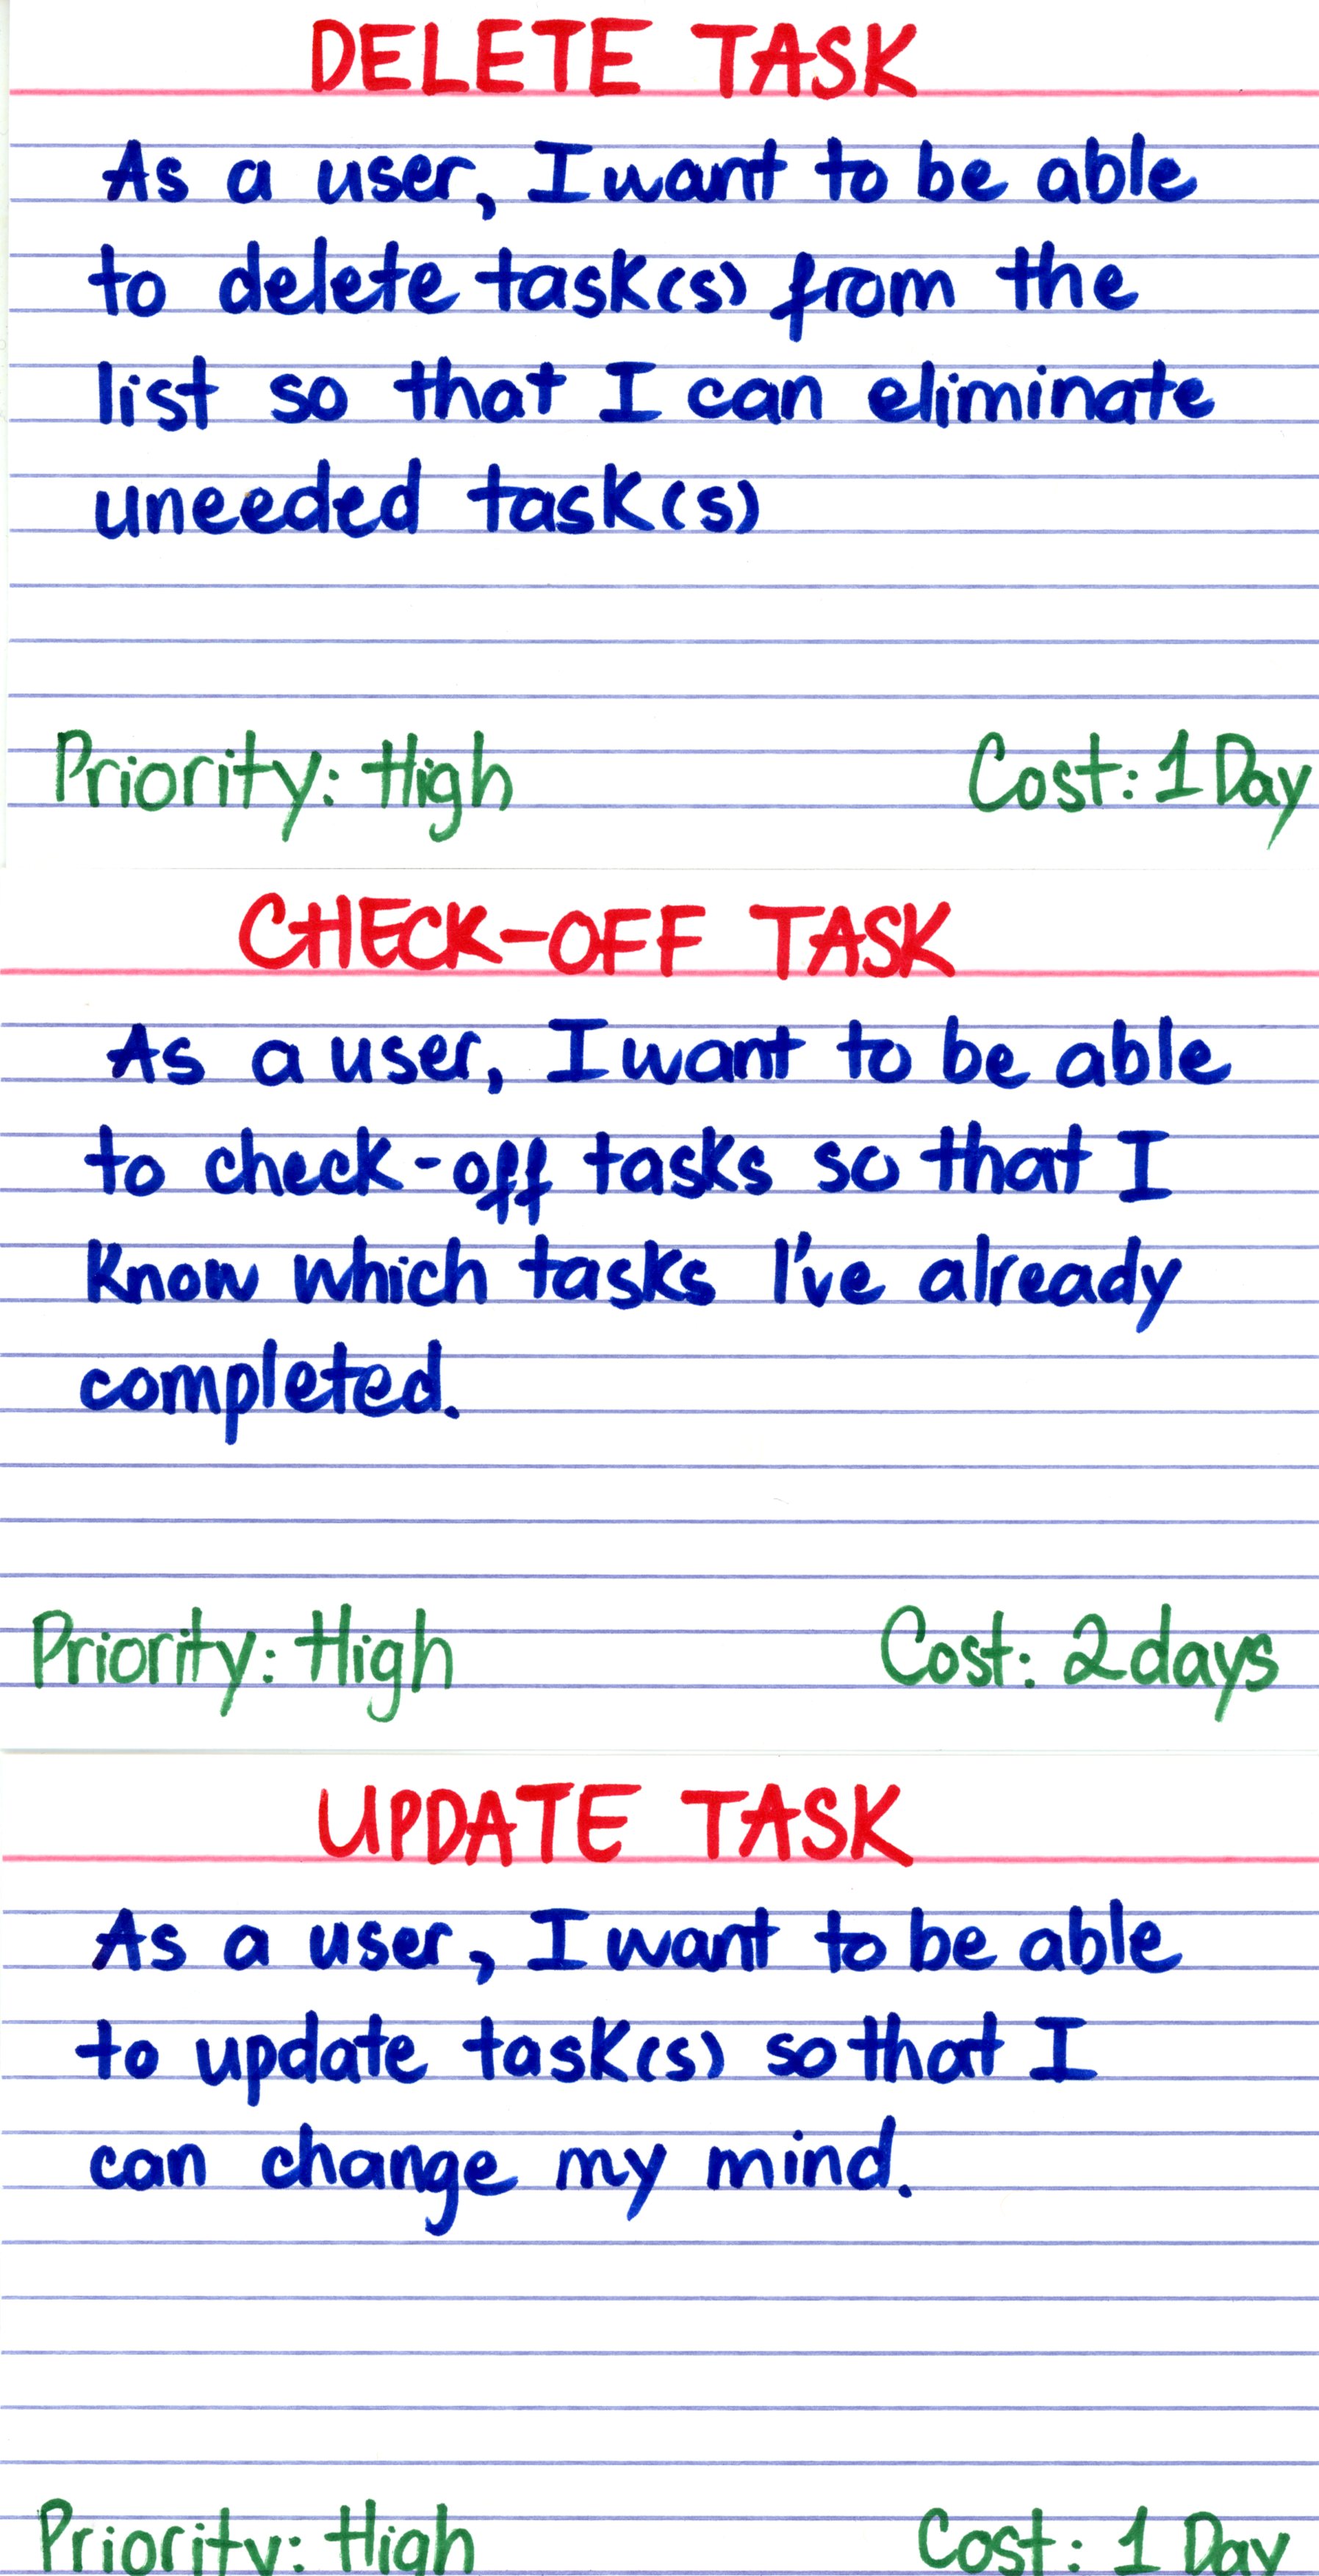 DELETE TASK
As a user, I want to be able
to delete task(s) from the
list so that I can eliminate
uneeded task(s)
Priority: High
Cost: 1 Day
CHECK-OFF TASK
As a user, I want to be able
to check-off tasks so that I
Know which tasks I've already
completed.
Priority: High
Cost: 2 days
UPDATE TASK
As a user, I want to be able
to update task(s) so that I
can change my mind.
Priority: High
Cost: 1 Day